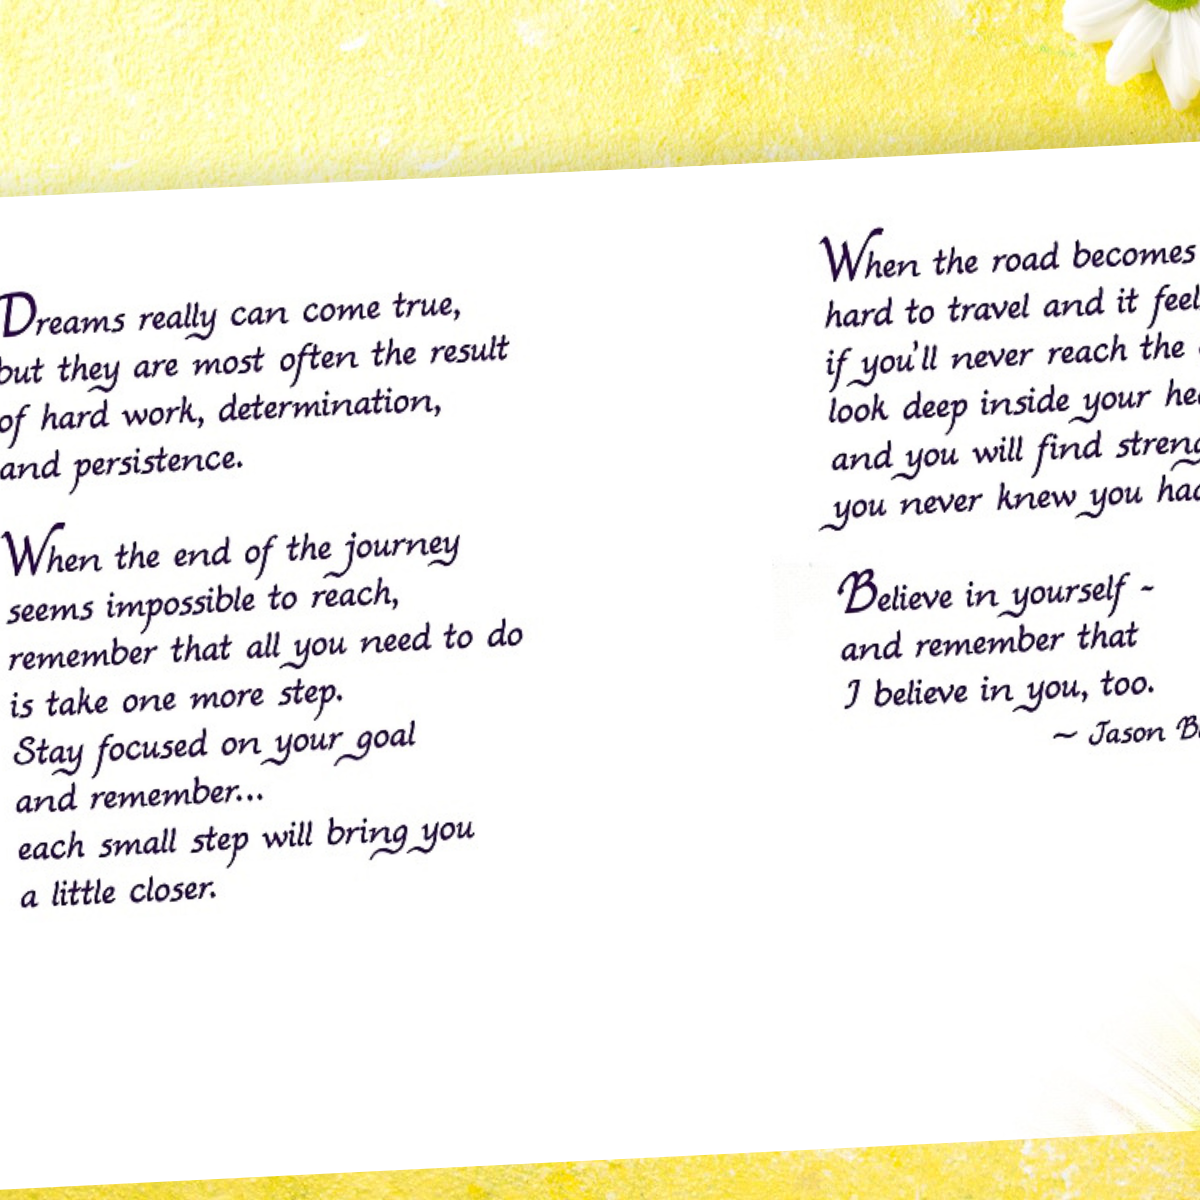 Dreams really can come true,
but they are most often the result
of hard work, determination,
and persistence.
When the end of the journey
seems impossible to reach,
remember that all you need to do
is take one more step.
Stay focused on your goal
and remember...
each small step will bring you
a little closer.
When the road becomes
hard to travel and it
if you'll never reach the
look deep inside your
and you will find
you never knew you
Believe in yourself ~
and remember that
I believe in you, too.
~ Jason